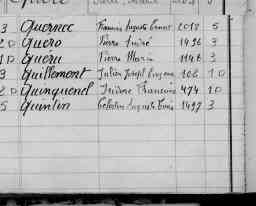 3 Quernec François Auguste 2012 5
2 D Quero Pierre André 1496 3
1 D Queru Pierre Marie 1146 3
3 Quillement Julien Joseph Eugène 108 1 D
2 D Quinquenel Isidore François 474 1 D
5 Quintin Celestin Auguste Louis 1497 3